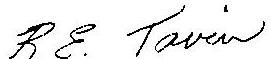 R E. Tavin